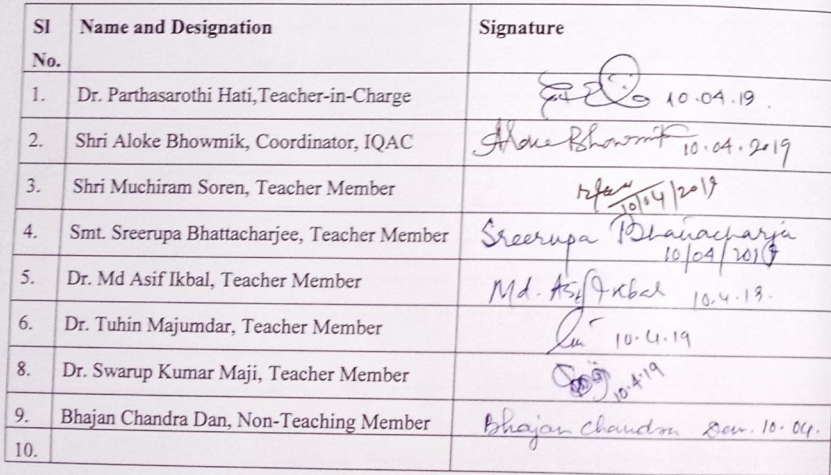 Sl No. Name and Designation Signature
1. Dr. Parthasarothi Hati,Teacher-in-Charge 10.04.19.
2. Shri Aloke Bhowmik, Coordinator, IQAC Aloke Bhowmik 10.04.2019
3. Shri Muchiram Soren, Teacher Member 10/04/2019
4. Smt. Sreerupa Bhattacharjee, Teacher Member Sreerupa Bhattacharjee
10/04/2019
5. Dr. Md Asif Ikbal, Teacher Member Md. Asif Ikbal 10.4.19.
6. Dr. Tuhin Majumdar, Teacher Member 10.4.19
8. Dr. Swarup Kumar Maji, Teacher Member 10.4.19
9. Bhajan Chandra Dan, Non-Teaching Member Bhajan Chandra Dan. 10.04.
10.